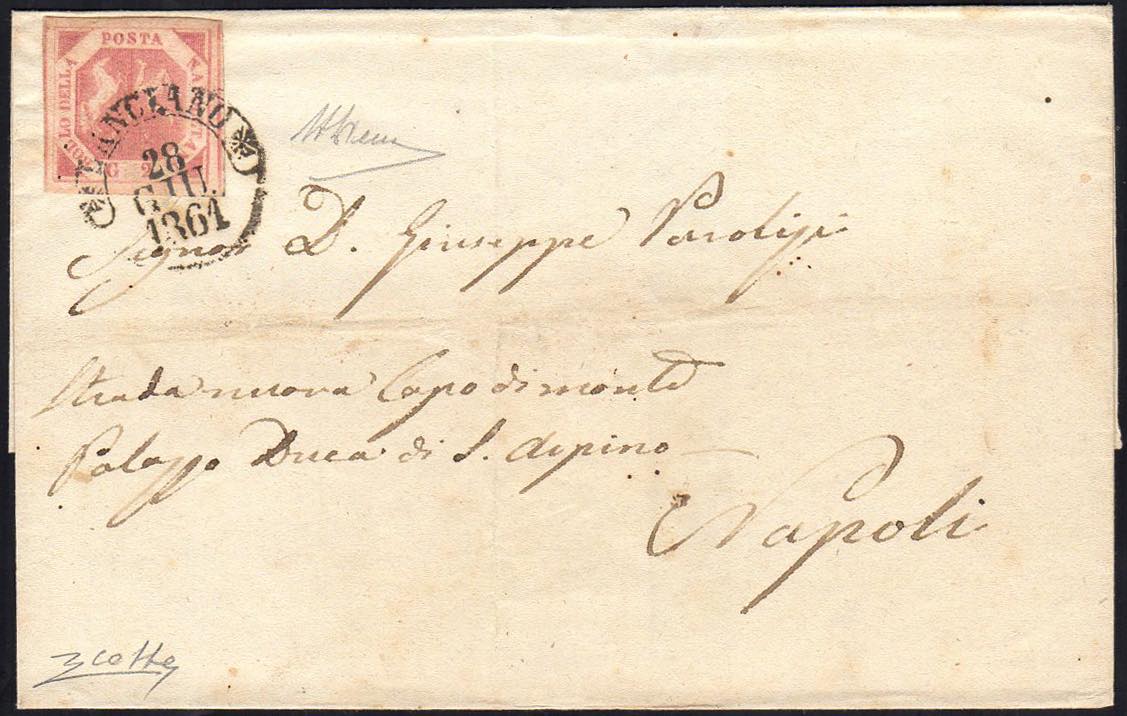 POSTA
BOLLO DELLA
NAPOLETANA
G 2
LANCIANO
28
GIU.
1861
Signor D. Giuseppe Parolisi
Strada nuova Capodimonte
Palazzo Duca di S. Arpino
Napoli